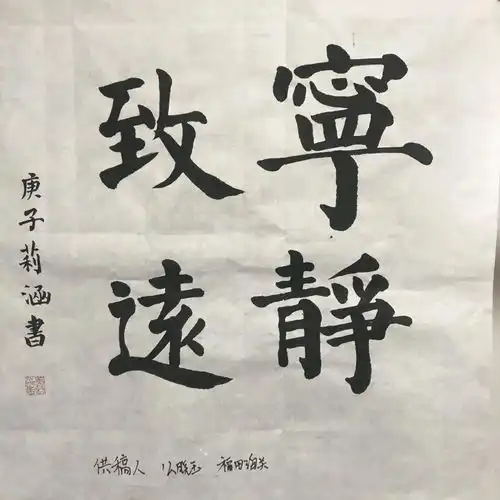 寧靜
致遠
庚子莉涵書
供稿人